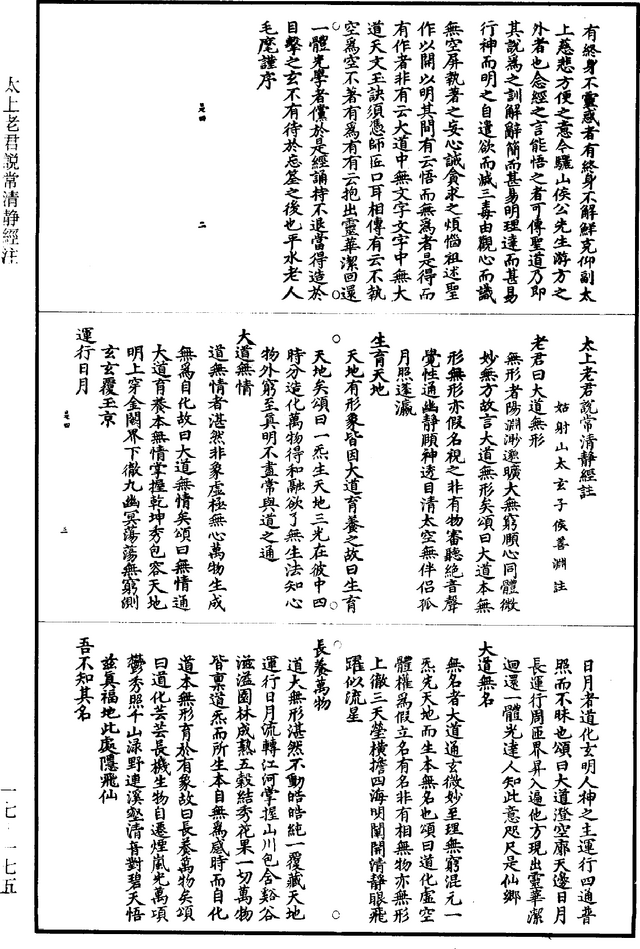 太上老君說常清靜經注
有終身不靈惑者有終身不解鮮克仰副太
上慈悲方便之意今驪山侯公先生游方之
外者也念經之言能悟之者可傳聖道乃即
其說為之訓解辭簡而甚易明理達而甚易
行神而明之自遣欲而滅三毒由觀心而識
無空屏執著之妄心誡貪求之煩惱祖述聖
作以開以明其間有云悟而無為者是得而
有作者非有云大道中無文字文字中無大
道天文玉訣須憑師匠口耳相傳有云不執
空為空不著有為有有云抱出靈華潔回還
一體光學者儻於是經誦持不退當得造於
目擊之玄不有待於忘筌之後也平水老人
毛麾謹序
是四 二
太上老君說常清靜經註
姑射山太玄子侯善淵註
老君曰大道無形
無形者陽淵渺邈曠大無窮願心同體微
妙無方故言大道無形矣頌曰大道本無
形無形亦假名視之非有物審聽絕音聲
覺性通幽靜顒神透目清太空無伴侶孤
月照蓬瀛
生育天地
天地有形象皆因大道育養之故曰生育
天地矣頌曰一炁生天地三光在彼中四
時分造化萬物得和融欲了無生法知心
物外窮至真明不盡常與道之通
大道無情
道無情者湛然非象虛極無心萬物生成
無為自化故曰大道無情矣頌曰無情通
大道育養本無情掌握乾坤秀包容天地
明上穿金闕界下徹九幽冥蕩蕩無窮測
玄玄覆玉京
運行日月
是四 三
日月者道化玄明人神之主運行四通普
照而不昧也頌曰大道澄空廓天邊日月
長運行周匝界昇入遍他方現出靈華潔
迴還一體光達人知此意咫尺是仙鄉
大道無名
無名者大道通玄微妙至理無窮混元一
炁先天地而生本無名也頌曰道化虛空
體權為假立名有名非有相無物亦無形
上徹三天瑩橫擔四海明闡開清靜眼飛
躍似流星
長養萬物
道大無形湛然不動皓皓純一覆藏天地
運行日月流轉江河掌握山川包含谿谷
滋溢園林成熟五穀結秀花果一切萬物
皆稟道炁而所生本自無為感時而自化
道本無形育於有象故曰長養萬物矣頌
曰道化芸芸長機生物自遷煙嵐光萬項
鬱秀照千山淥野連溪壑清音對碧天悟
茲真福地此處隱飛仙
吾不知其名
一七‧一七五